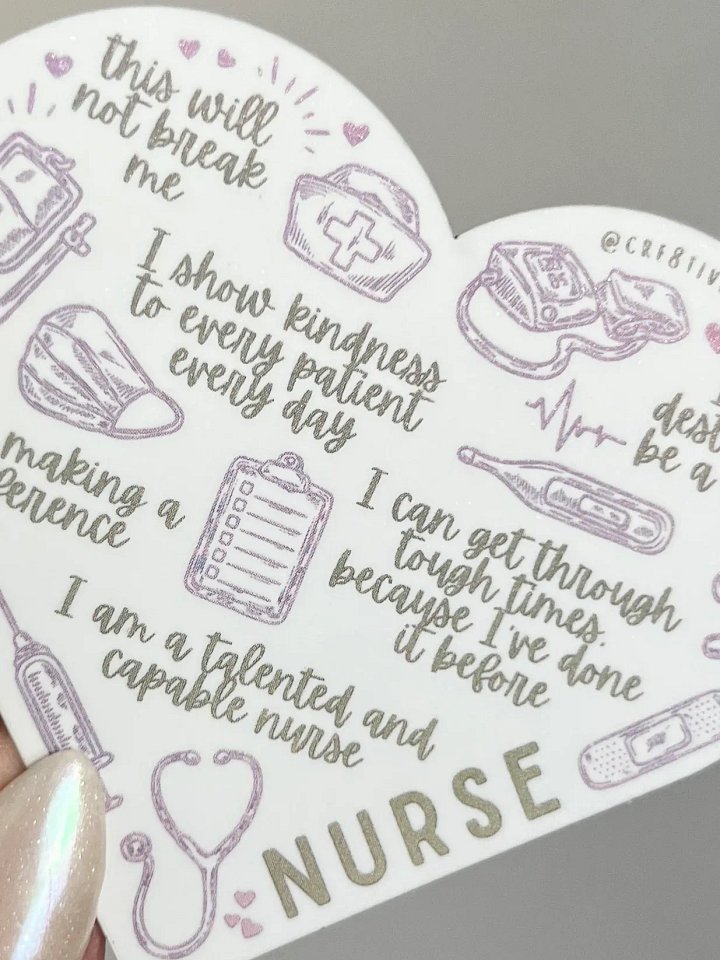 this will
not break
me
@CRE8TIV
I show kindness
to every patient
every day
be a
making a
I can get through
tough times
because I've done
it before
I am a talented and
capable nurse
NURSE